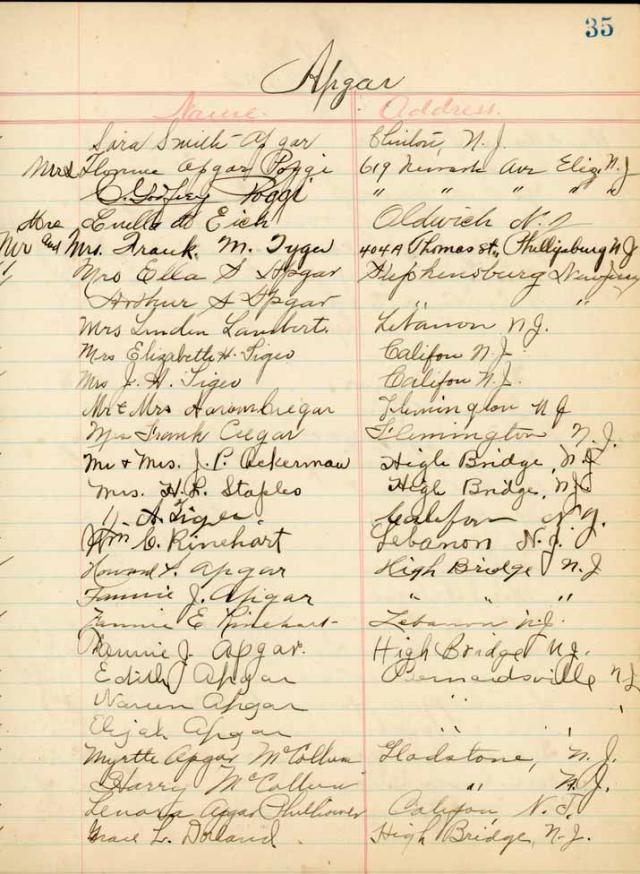 35
Apgar
Name. Address.
Sara Smith Apgar Clinton, N. J.
Mrs Florence Apgar Poggi 619 Newark Ave Eliz. N. J
C. Godfrey Poggi " " " " "
Mrs Luella de Eich Oldwich N. J
Mr and Mrs. Frank. M. Tyger 404A Thomas St., Phillipsburg N J
Mrs Ella S Apgar Stephensburg New Jersey
Arthur S Apgar " "
Mrs Linden Lambert. Lebanon N. J.
Mrs Elizabeth H. Tiger Califon N. J.
Mrs J. H. Tiger Califon N. J.
Mr & Mrs Aaron Cregar Flemington N J
Mrs Frank Cregar Flemington N. J.
Mr & Mrs. J. P. Ackerman High Bridge, N. J
Mrs. H. L. Staples High Bridge, N. J.
A. Tiger. Califon N. J.
Wm C. Rinehart Lebanon N. J.
Howard F. Apgar High Bridge N. J
Fannie J. Apgar " " "
Fannie E Rinehart Lebanon N. J.
Nannie J. Apgar. High Bridge N. J.
Edith Apgar Bernardsville N J.
Warren Apgar " "
Elijah Apgar " "
Myrtle Apgar McCollum Gladstone, N. J.
Harry McCollum " N. J.
Lenora Apgar Philhower Califon, N. J.
Grace L. Dorland High Bridge, N. J.